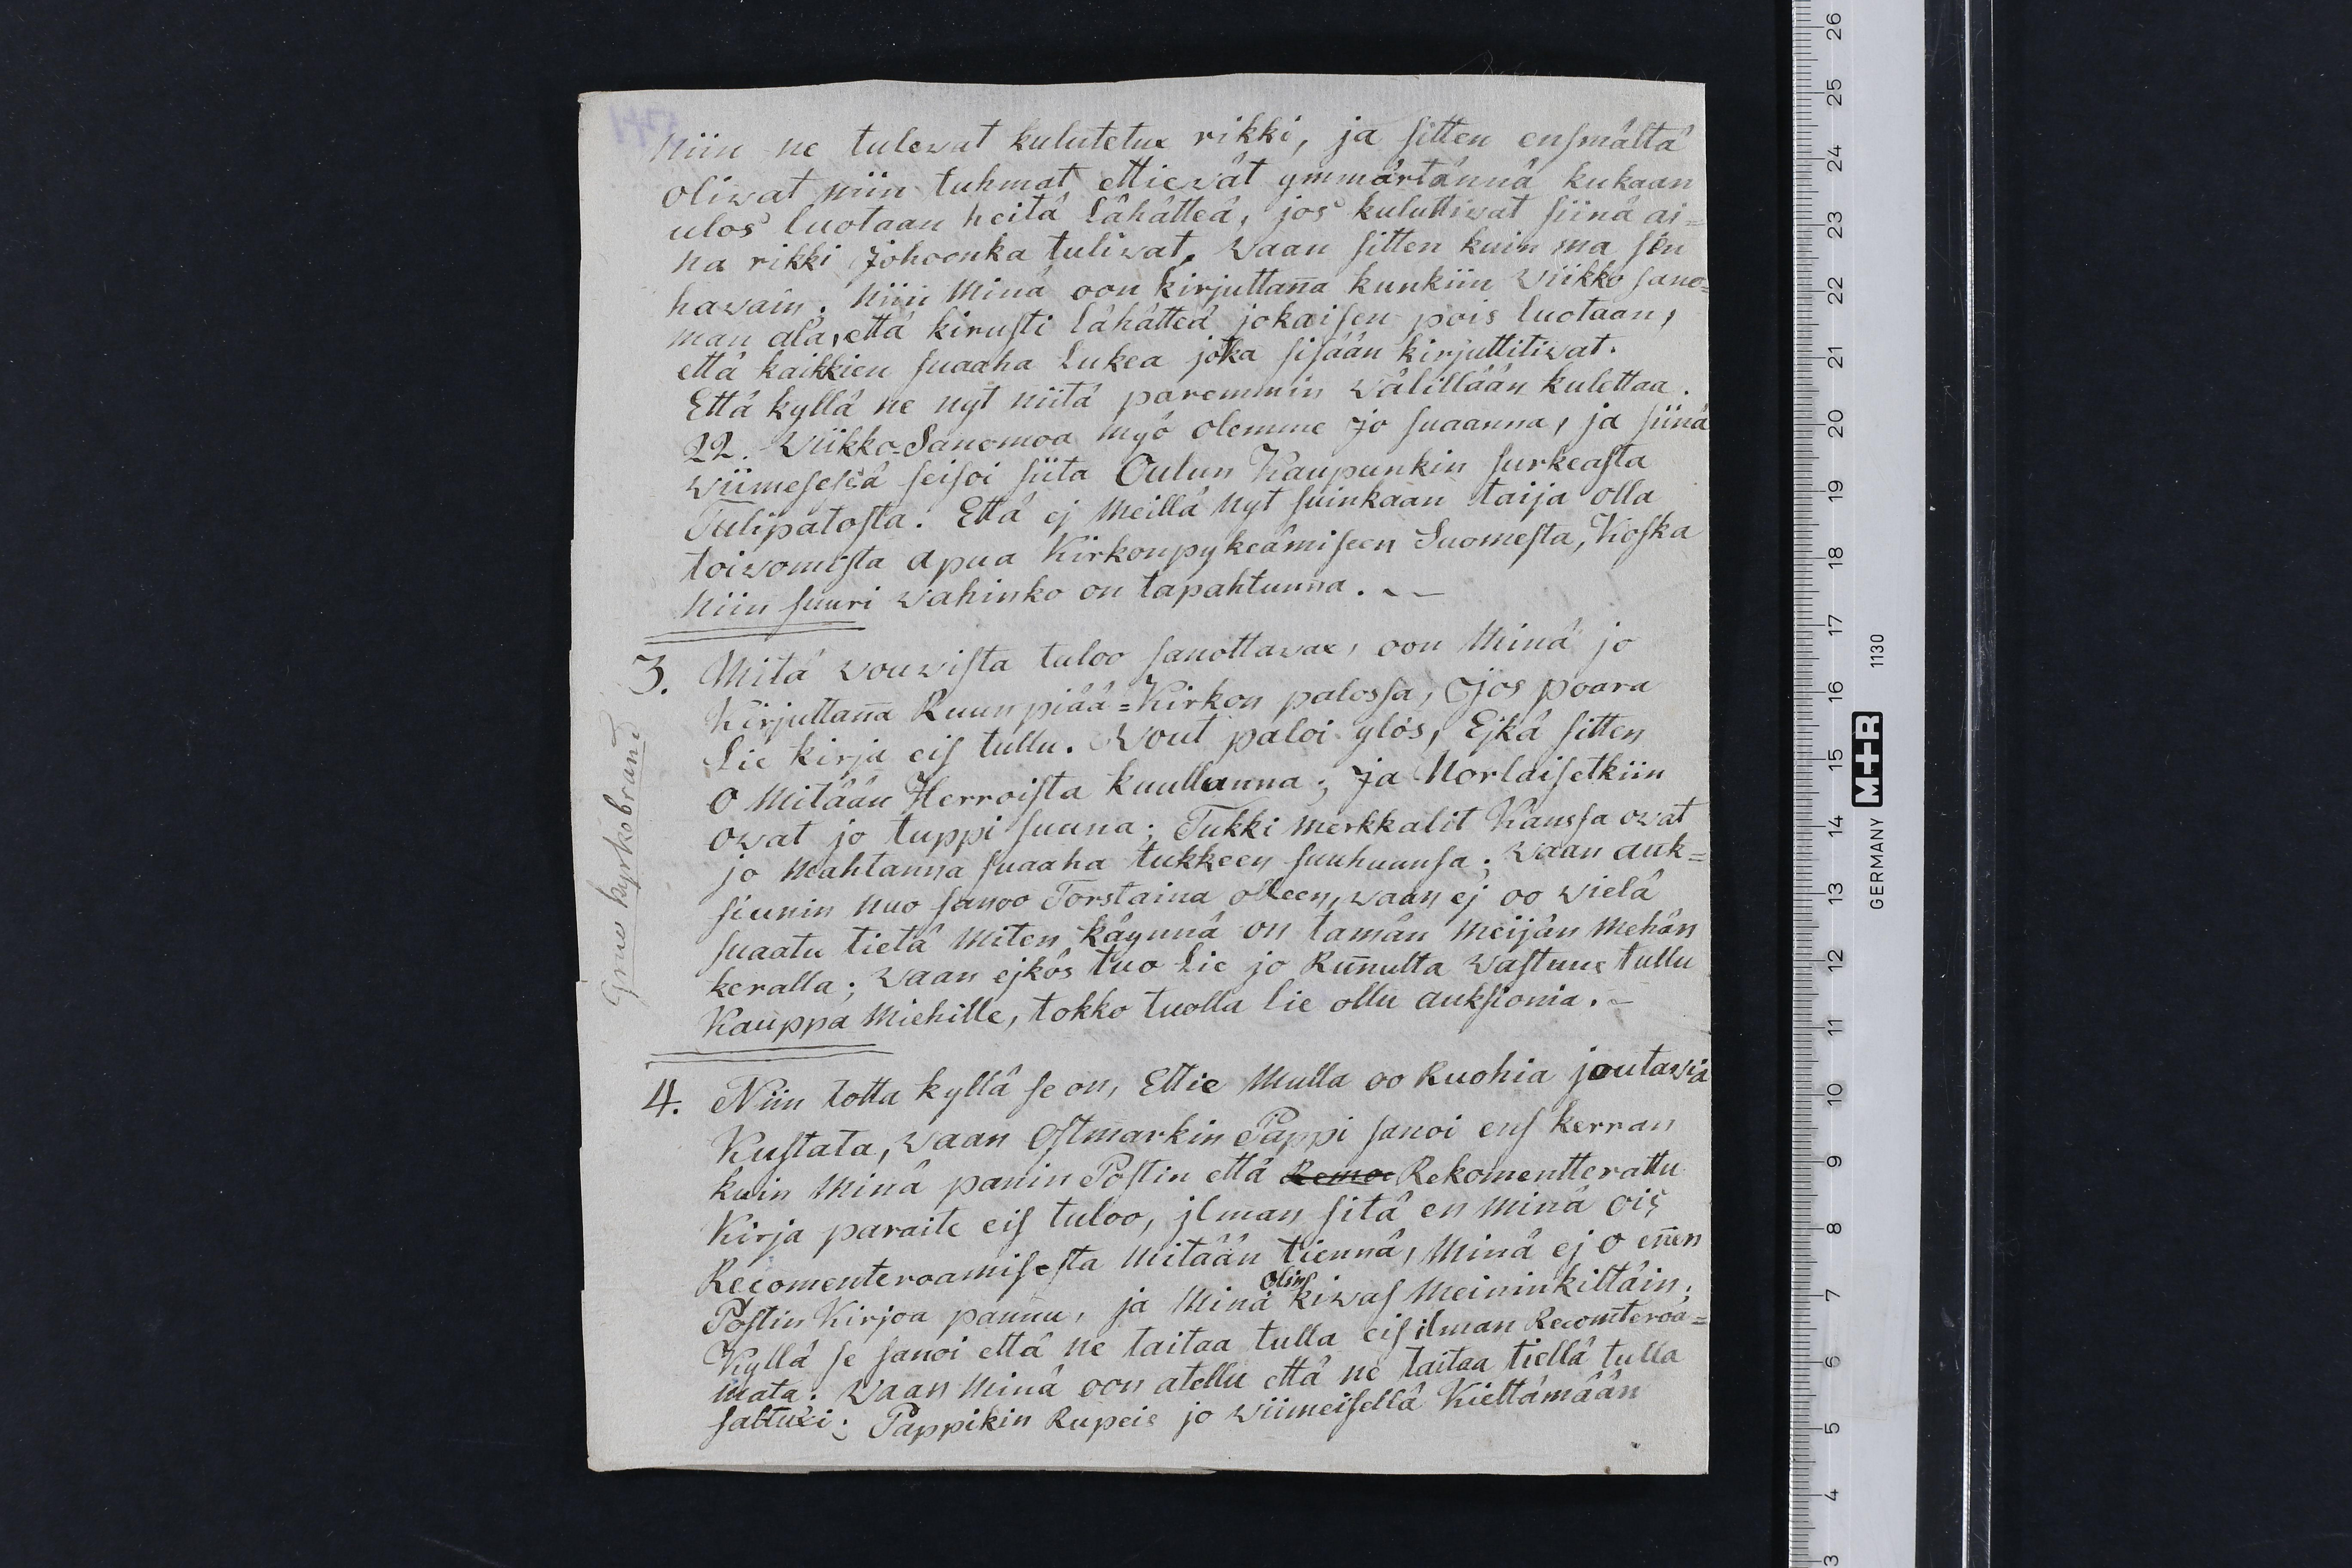 niin ne tulewat kulutetux rikki, ja sitten ensmältä
oliwat niin tuhmat ettiewät ymmärtännä kukaan
ulos luotaan heitä lähätteä, jos kuluttiwat siinä ai=
na rikki johoonka tuliwat. waan sitten kuin ma sen
hawain. niin Minä oon kirjuttan̄a kunkiin wiikko sano=
man ala, että kirusti lähätteä jokaisen pois luotaan,
että kaikkien suaaha lukea joka sisään kirjuttitiwat.
Että kyllä ne nyt niitä paremmin wälillään kulettaa.
22. wiikko-Sanomoa myö olemme jo suaanna, ja siinä
wiimesessä seisoi siita Oulun Kaupunkin surkeasta
Tulipalosta. Että ej meillä nyt suinkaan taija olla
toiwomista apua Kirkonpykeämiseen Suomesta, Koska
niin suuri wahinko on tapahtunna.
3. Mitä wouwista tuloo sanottawax, oon Minä jo
Kirjuttan̄a Ruunpiää=Kirkon palossa, Jos poara
lie kirja eis tullu. Wout paloi ylös, Ejkä sitten
O Mitään Herroista kuullanna; ja Norlaisetkiin
owat jo tuppi suuna; Tukki merkkalit Kanssa owat
jo Mahtanna suaaha tukkeen suuhuunsa; waan auk=
siunin nuo sanoo Torstaina olleen, waan ej oo wielä
suaatu tietä Miten käynnä on tamän Meijän Mehän
keralla; waan ejkös tuo lie jo Run̄utta wastuus tullu
Kauppa Miehille, tokko tuolla lie ollu auksionia.
Grue kyrkobrand
4. Niin totta kyllä se on, Ettie Mulla oo Ruohia joutawia
Kustata, waan Östmarkin Pappi sanoi ens kerran
kuin Minä panin Postin että Remoe Rekomentterattu
Kirja paraite eis tuloo, jlman sitä en Minä ois
Recomenteroamisesta Mitään tiennä, Minä ej O en̄en
Postin Kirjoa pannu, ja Minä olins kiwas Meininkiltäin;
Kyllä se sanoi että ne taitaa tulla eis ilman Recom̄teroa=
mata. waan Minä oon atellu että ne taitaa tiellä tulla
saltuxi; Pappikin Rupeis jo wiimeisellä Kieltämään
GERMANY M+R 1130
26
25
24
23
22
21
20
19
18
17
16
15
14
13
12
11
10
9
8
7
6
5
4
3